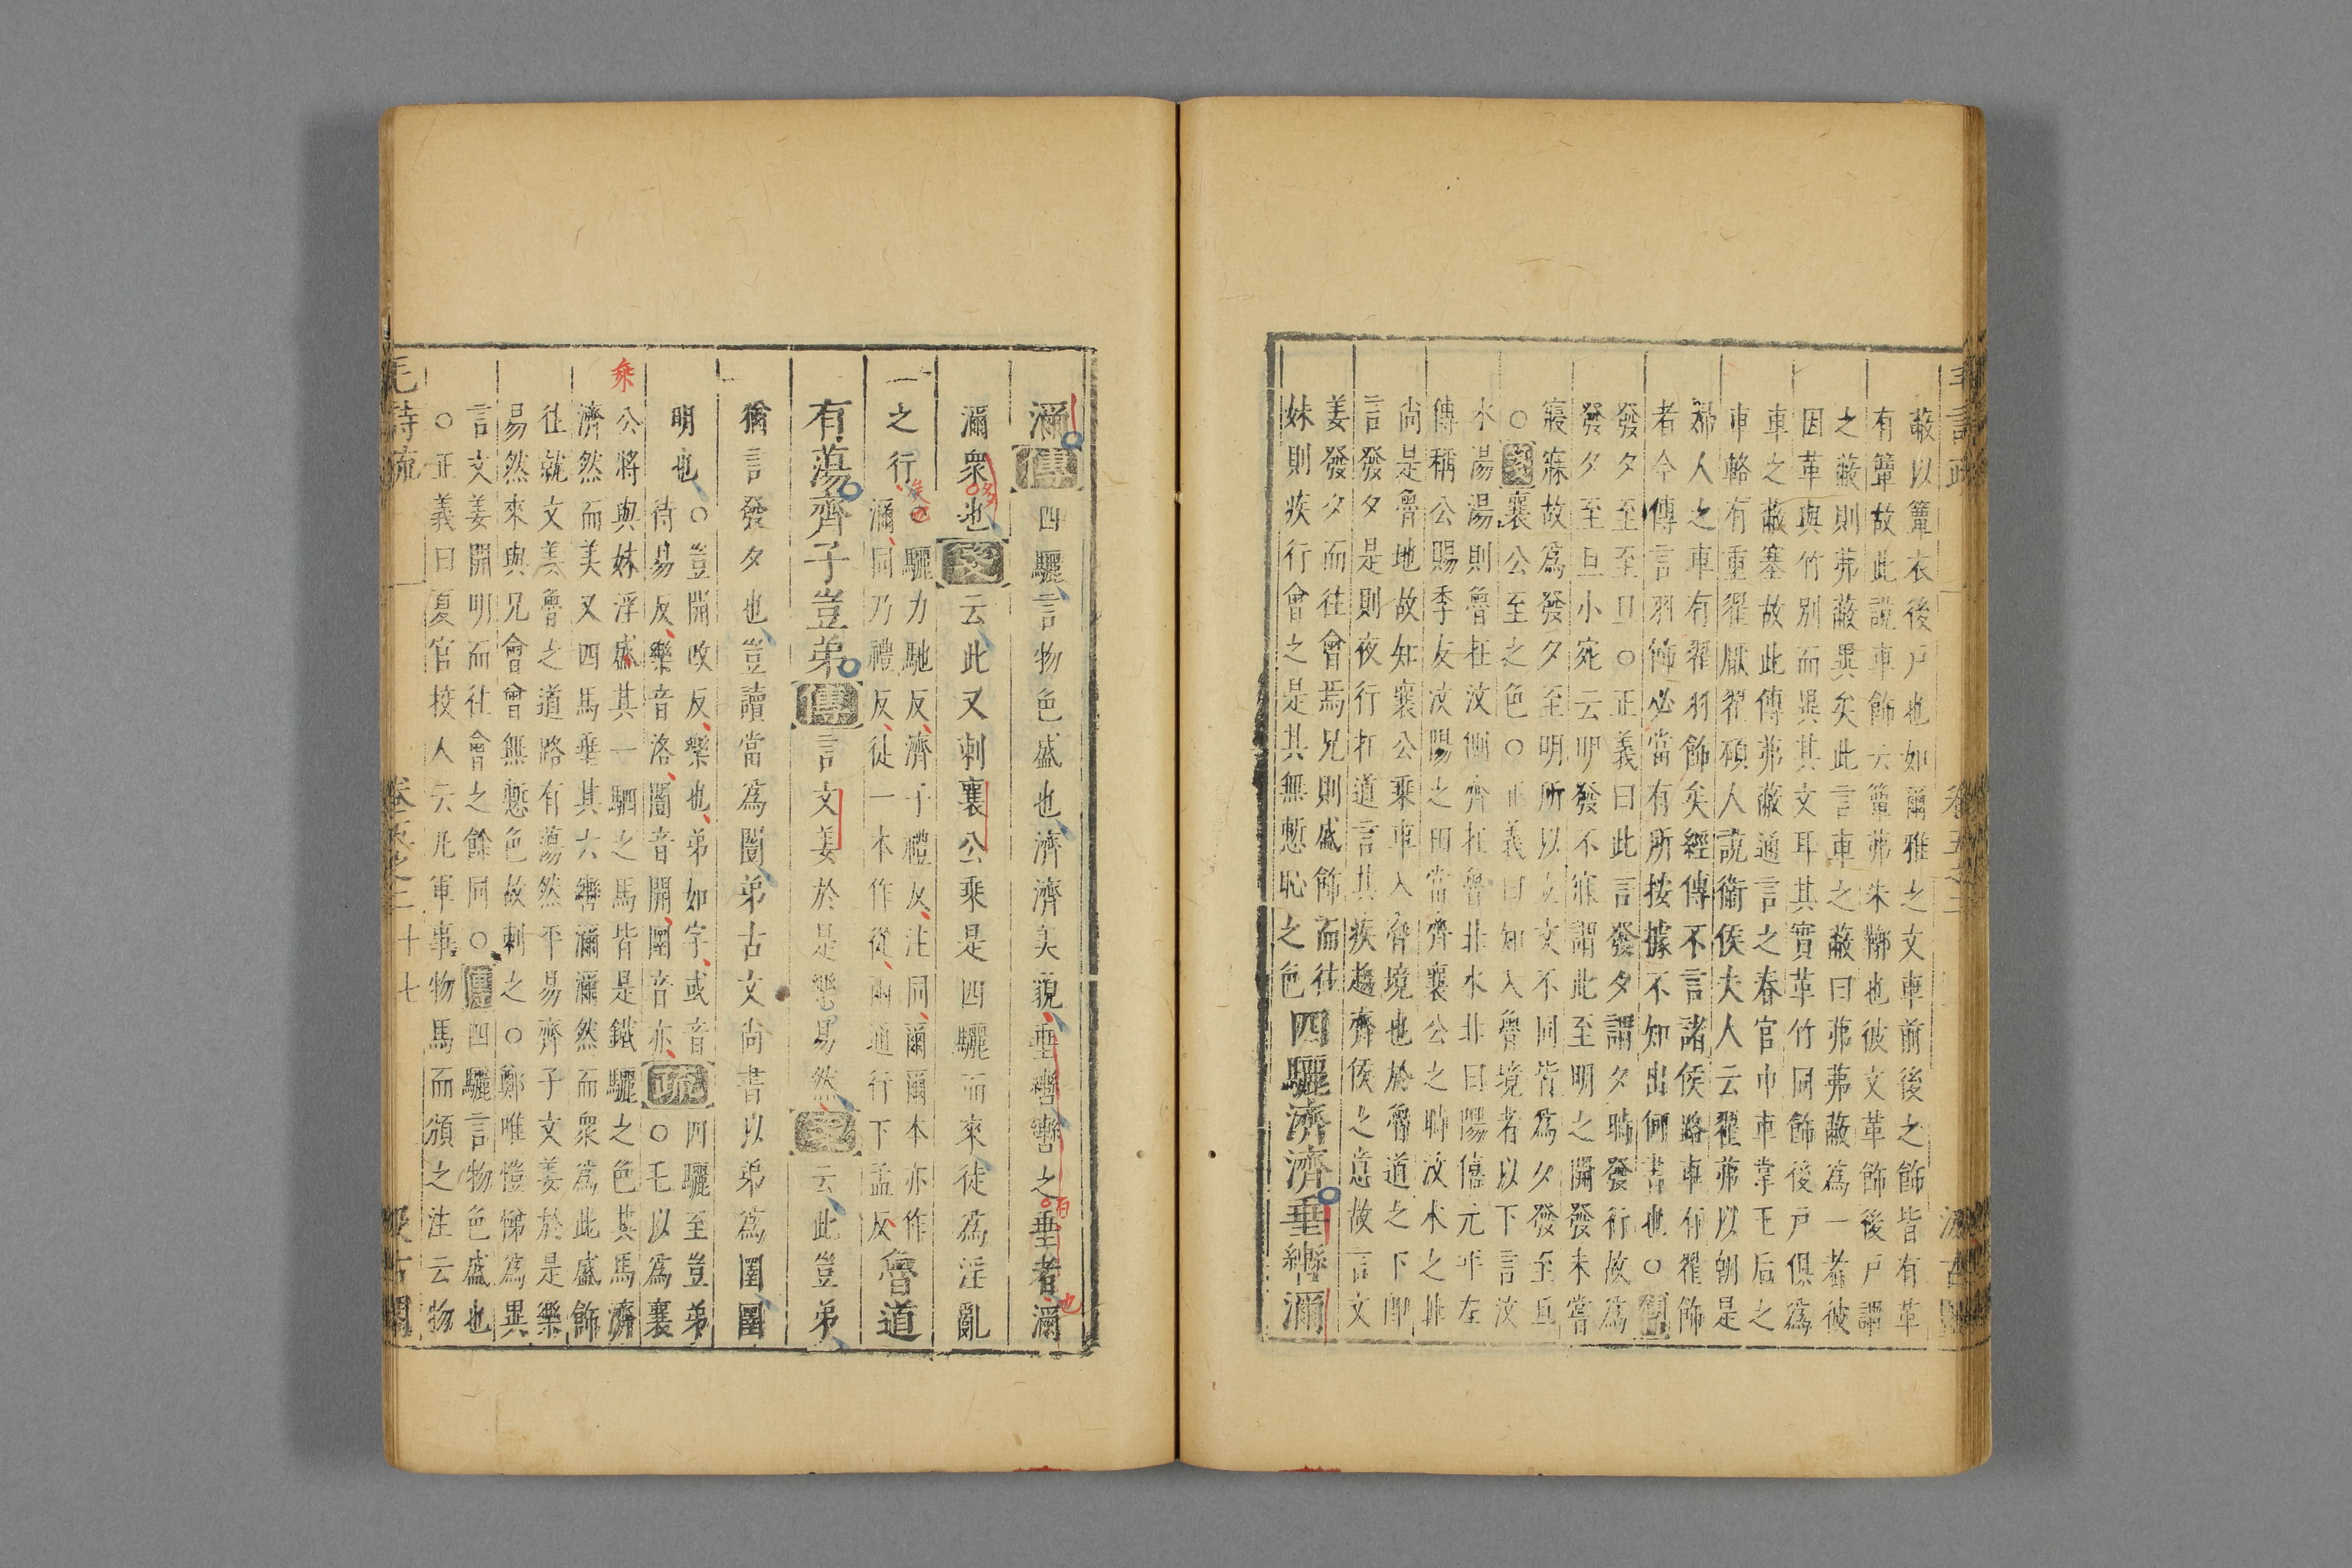 蔽以簟衣後戶也如爾雅之文車前後之飾皆有革
有簟故此說車飾云簟茀朱鞹也彼文革飾後戶謂
之蔽則茀蔽異矣此言車之蔽曰茀茀蔽為一者彼
因革與竹別而異其文耳其實革竹同飾後戶俱為
車之蔽蔽塞故此傳茀蔽通言之春官巾車掌王后之
車輅有重翟厭翟碩人說衛侯夫人云翟茀以朝是
婦人之車有翟羽飾矣經傳不言諸侯路車有翟飾
者今傳言羽飾必當有所按據不知出何書也○傳
發夕至至旦○正義曰此言發夕謂夕時發行故為
發夕至旦小宛云明發不寐謂此至明之開發未嘗
寢寐故為發夕至明所以立文不同皆為夕發至旦
○箋襄公至之色○正義曰知入魯境者以下言汶
水湯湯則魯在汶側齊在魯北水北曰陽僖元年左
傳稱公賜季友汶陽之田當齊襄公之時汶水之北
尚是魯地故知襄公乘車入魯境也於魯道之下即
言發夕是則夜行在道言其疾趨齊侯之意故言文
姜發夕而往會焉兄則盛飾而往
妹則疾行會之是其無慙恥之色
四驪濟濟垂轡瀰
瀰傳四驪言物色盛也濟濟美貌垂轡轡之垂者瀰
瀰衆也箋云此又刺襄公乘是四驪而來徒為淫亂
之行
驪力馳反濟子禮反注同爾爾本亦作
瀰同乃禮反徒一本作從兩通行下孟反
魯道
有蕩齊子豈弟傳言文姜於是樂易然箋云此豈弟
猶言發夕也豈讀當為闓弟古文尚書以弟為圛圛
明也
○豈開改反樂也弟如字或音
待易反樂音洛闓音開圛音亦
疏
四驪至豈弟
○毛以為襄
公將與妹浮盛其一駟之馬皆是鐵驪之色其馬濟
濟然而美又四馬垂其六轡瀰瀰然而眾為此盛飾
往就文姜魯之道路有蕩然平易齊子文姜於是樂
易然來與兄會曾無慙色故刺之○鄭唯愷悌為異
言文姜開明而往會之餘同○傳四驪言物色盛也
○正義曰夏官校人云凡軍事物馬而頒之注云物
毛詩疏 卷五之二 十七 汲古閣